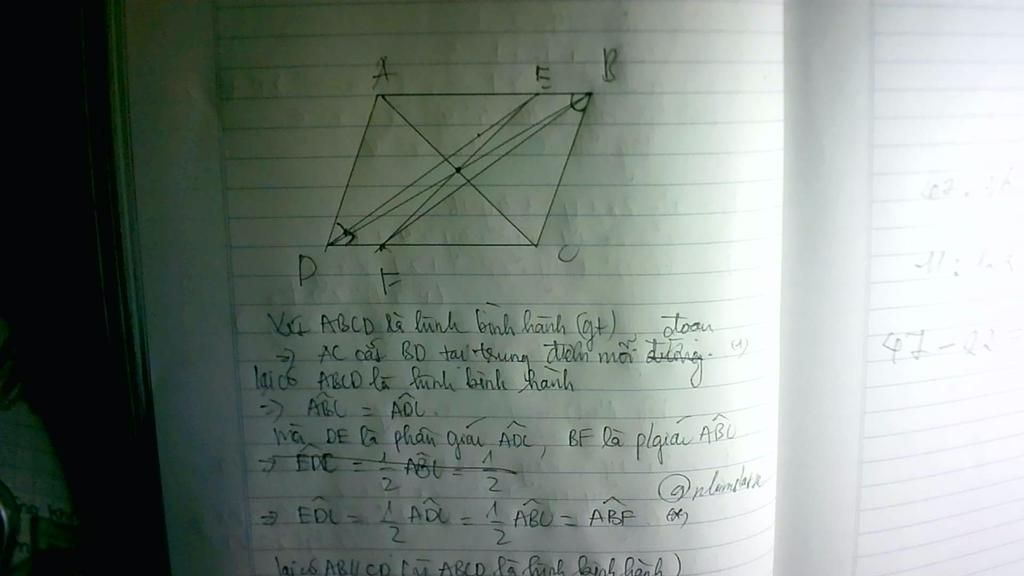 A E B
D F C
Xét ABCD là hình bình hành (gt), đoạn
=> AC cắt BD tại trung điểm mỗi đường. (1)
lại có ABCD là hình bình hành
=> ABC = ADC.
mà DE là phân giác ADC, BF là p/giác ABC
=> EDC = 1/2 ABC = 1/2
=> EDC = 1/2 ADC = 1/2 ABC = ABF (*)
lại có AB//CD (vì ABCD là hình bình hành)
47 - 22 =